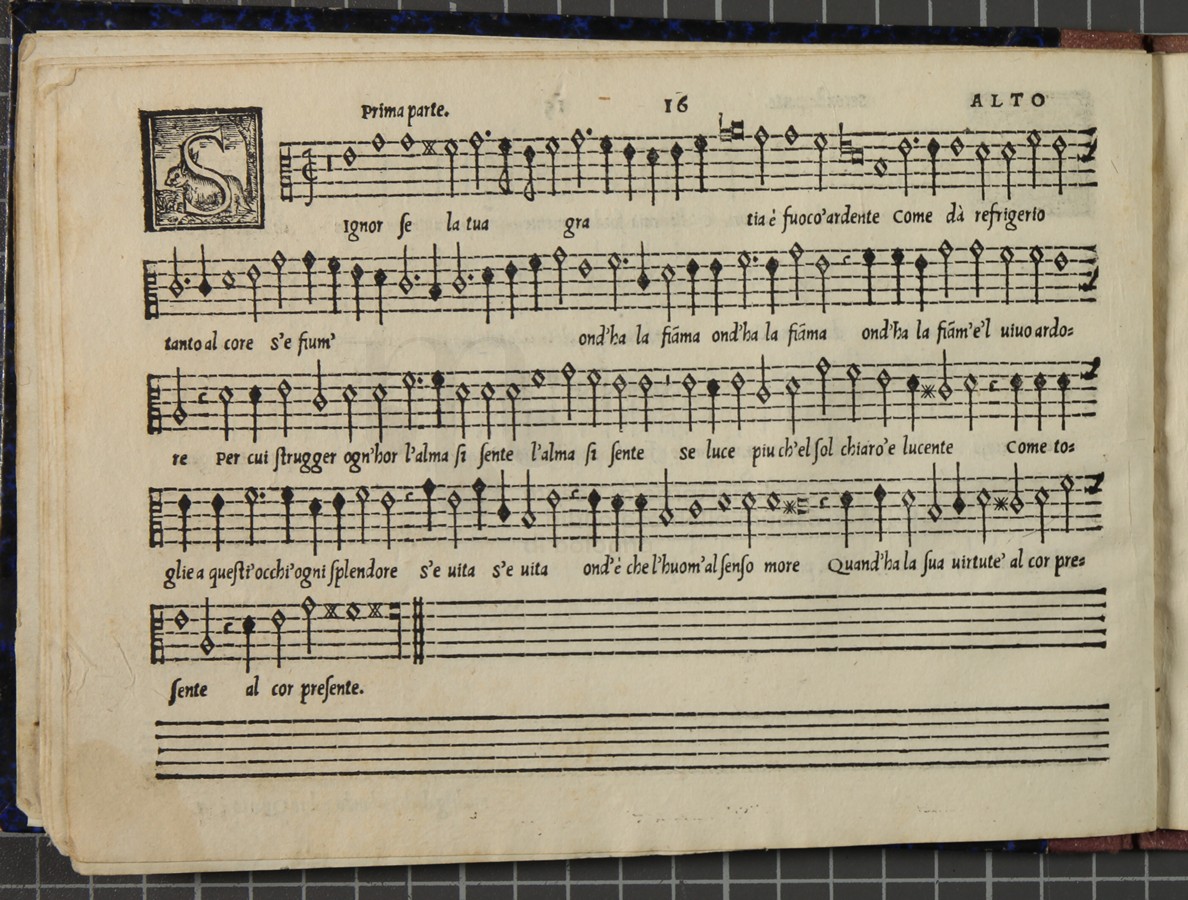 Prima parte. 16 ALTO
SIgnor ſe la tua gra tia è fuoco'ardente Come dà refrigerio
tanto al core s'e fium' ond'ha la fiãma ond'ha la fiãma ond'ha la fiãm'e'l uiuo ardo=
re Per cui ſtrugger ogn'hor l'alma ſi ſente l'alma ſi ſente ſe luce piu ch'el ſol chiaro'e lucente Come to=
glie a queſti'occhi'ogni ſplendore s'e uita s'e uita ond'è che l'huom'al ſenſo more Quand'ha la ſua uirtute' al cor pre=
ſente al cor preſente.